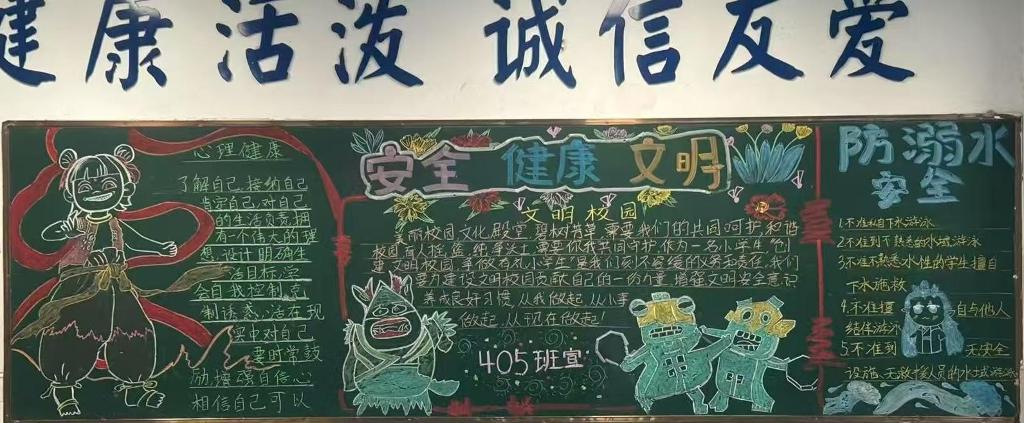 健康活泼 诚信友爱
心理健康
了解自己,接纳自己
肯定自己,对自己
的生活负责,拥
有一个伟大的理
想,设计明确生
活目标,学
会自我控制,克
制诱惑,活在现
实中,对自己
要时常鼓
励,增强自信心
相信自己可以
安全 健康 文明
文明校园
美丽校园文化殿堂
重要我们的共同呵护和
校园
重要你我共同守护,作为一名小学生"创
建文明校园,争做有礼小学生"是我们刻不容缓的义务和责任,我们
要为建设文明校园贡献自己的一份力量,增强文明安全意识
养成良好习惯,从我做起,从小事
做起,从现在做起!
405班宣
防溺水
安全
1.不准私自下水游泳
2.不准到不熟悉的水域游泳
3.不准不熟悉水性的学生擅自
下水施救
4.不准擅自与他人
结伴游泳
5.不准到无安全
设施、无救援人员的水域游泳